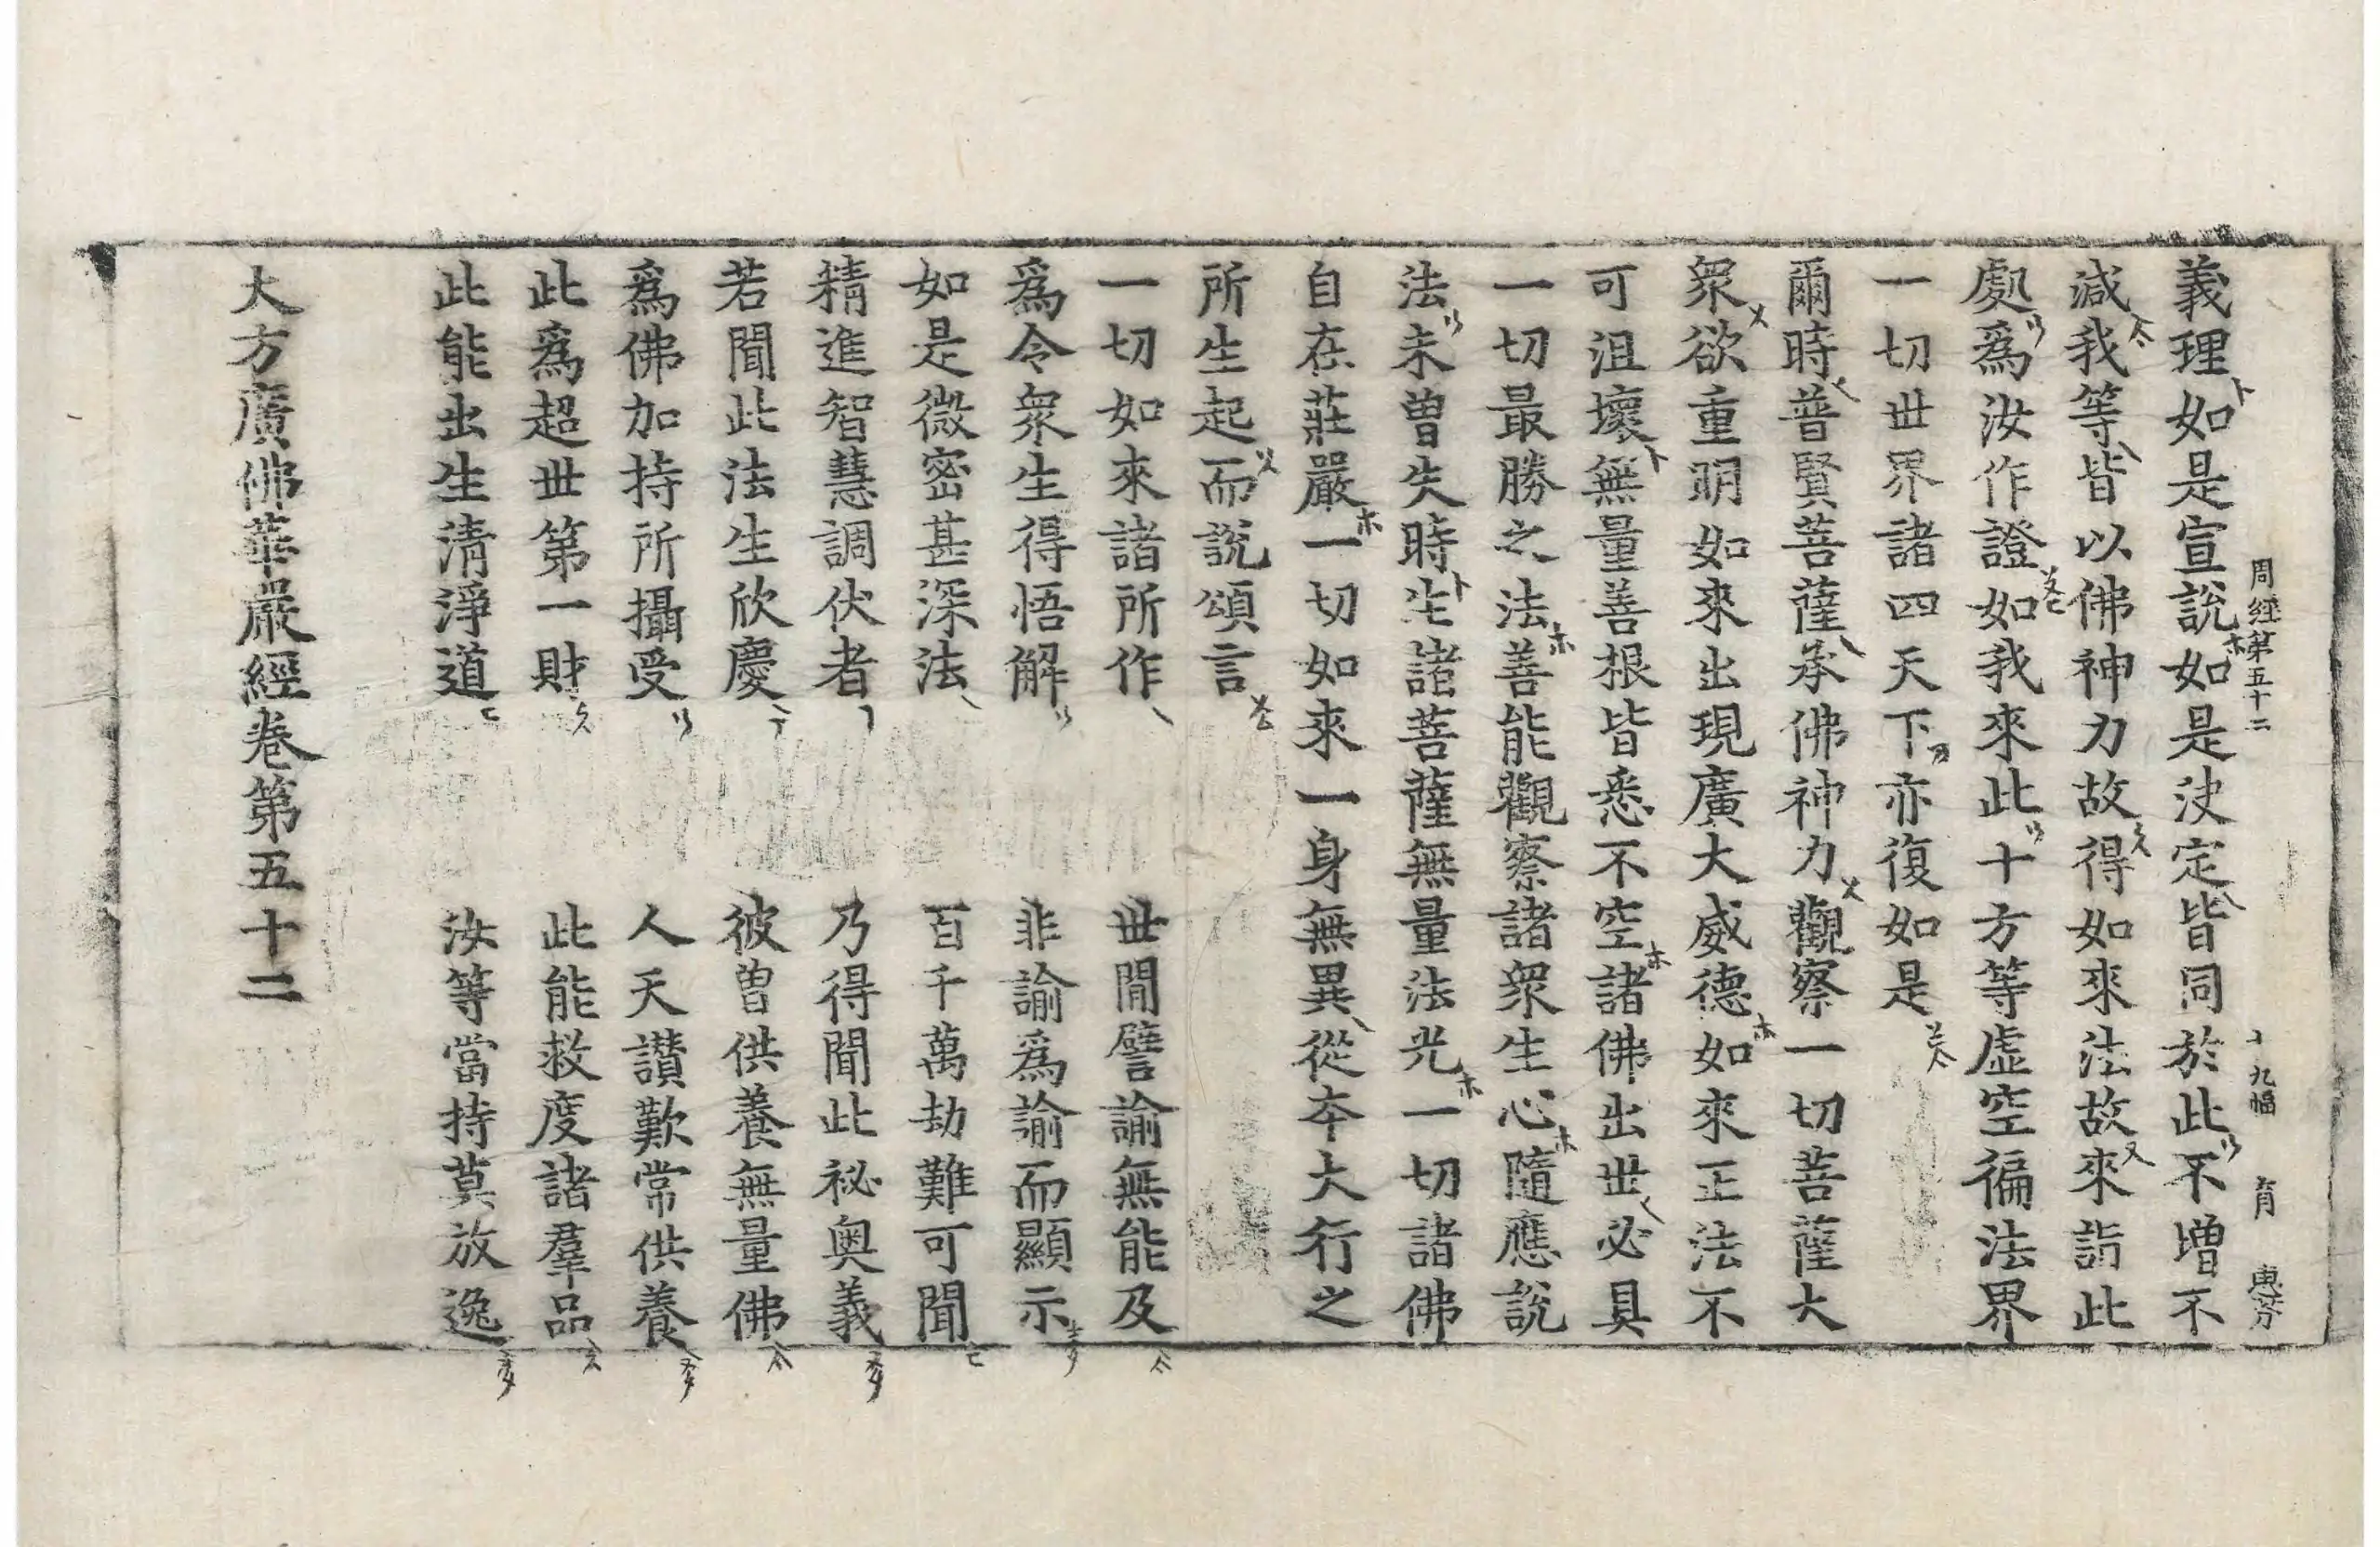 義理如是宣說如是決定皆同於此不增不
周經第五十二 十九幅 育 惠芳
減我等皆以佛神力故得如來法故來詣此
處爲汝作證如我來此十方等虛空徧法界
一切世界諸四天下亦復如是
爾時普賢菩薩承佛神力觀察一切菩薩大
衆欲重明如來出現廣大威德如來正法不
可沮壞無量善根皆悉不空諸佛出世必具
一切最勝之法善能觀察諸衆生心隨應說
法未曾失時生諸菩薩無量法光一切諸佛
自在莊嚴一切如來一身無異從本大行之
所生起而說頌言
一切如來諸所作 世閒譬諭無能及
爲令衆生得悟解 非諭爲諭而顯示
如是微密甚深法 百千萬劫難可聞
精進智慧調伏者 乃得聞此祕奧義
若聞此法生欣慶 彼曾供養無量佛
爲佛加持所攝受 人天讃歎常供養
此爲超世第一財 此能救度諸羣品
此能出生清淨道 汝等當持莫放逸
大方廣佛華嚴經卷第五十二